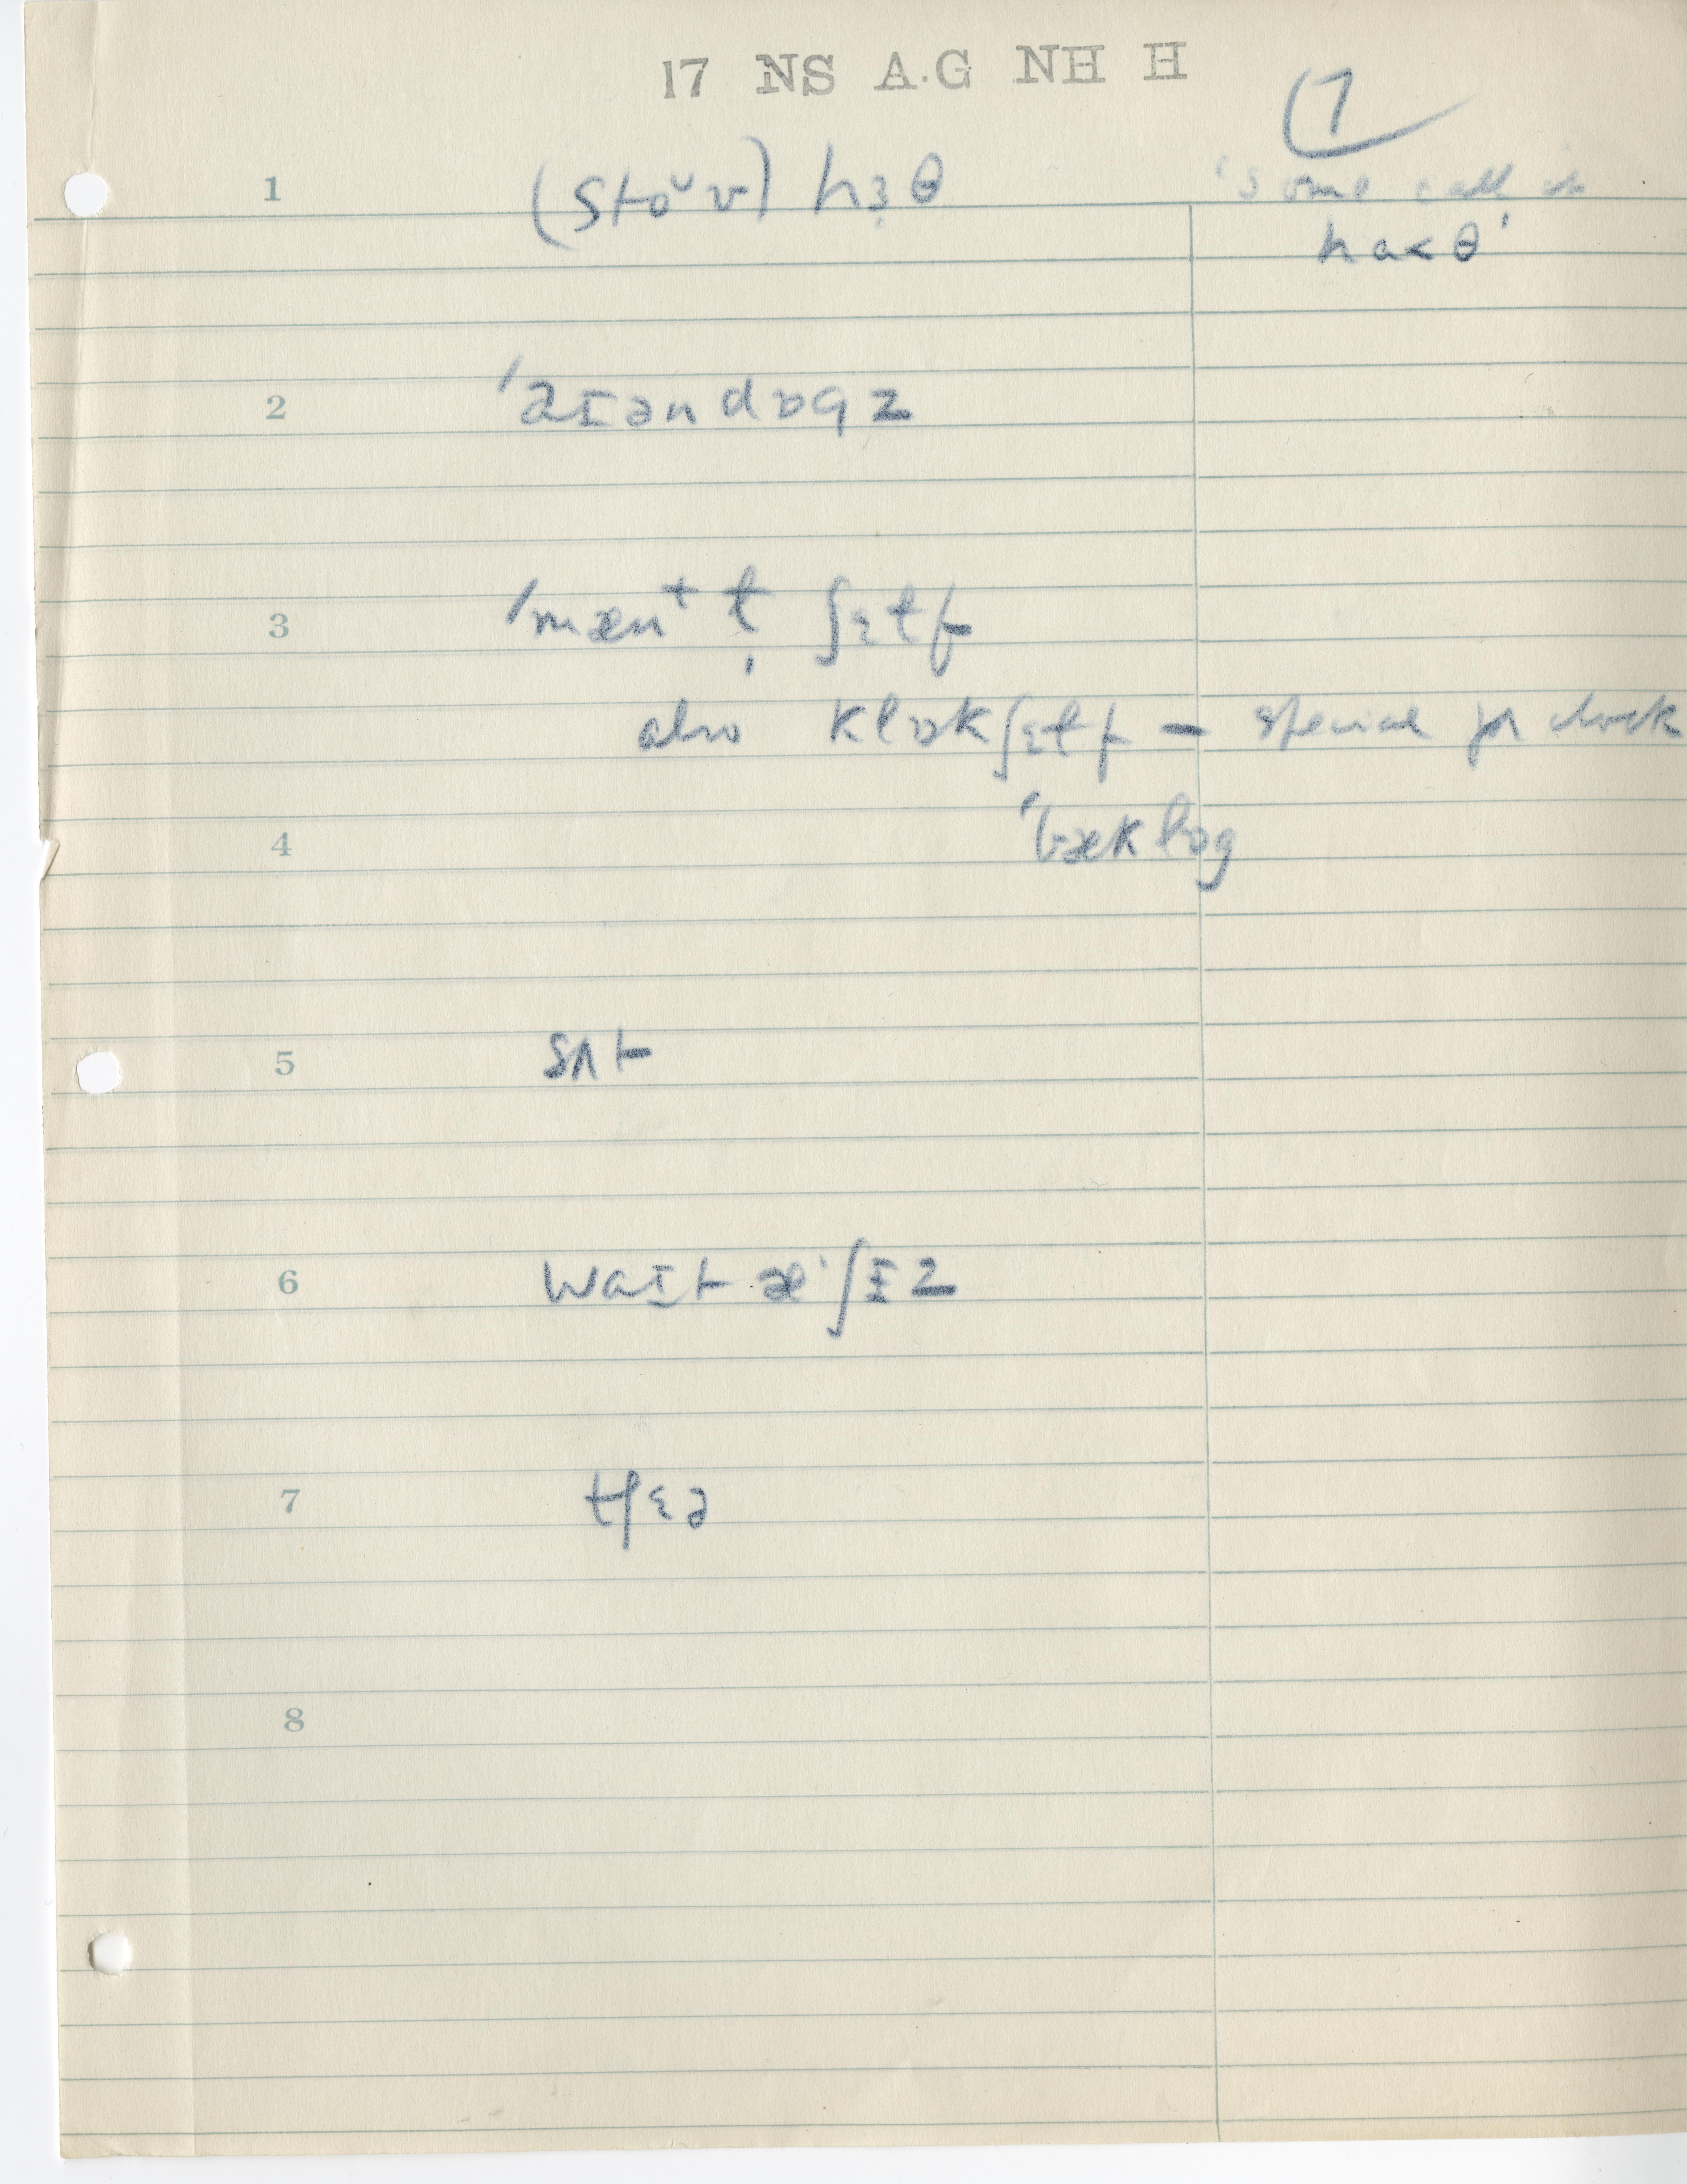 17 NS A.G NH H
7
1 (stoᵘv) hɜ̣θ 'some call it
ha<θ'
2 'aɪəndɒgz
3 'mæn⁺t̩ ʃɛɫf
also klɒkʃɛɫf – special for clock
4 'bæklɒg
5 sʌt
6 waɪt æ'ʃɪz
7 tʃɛə
8